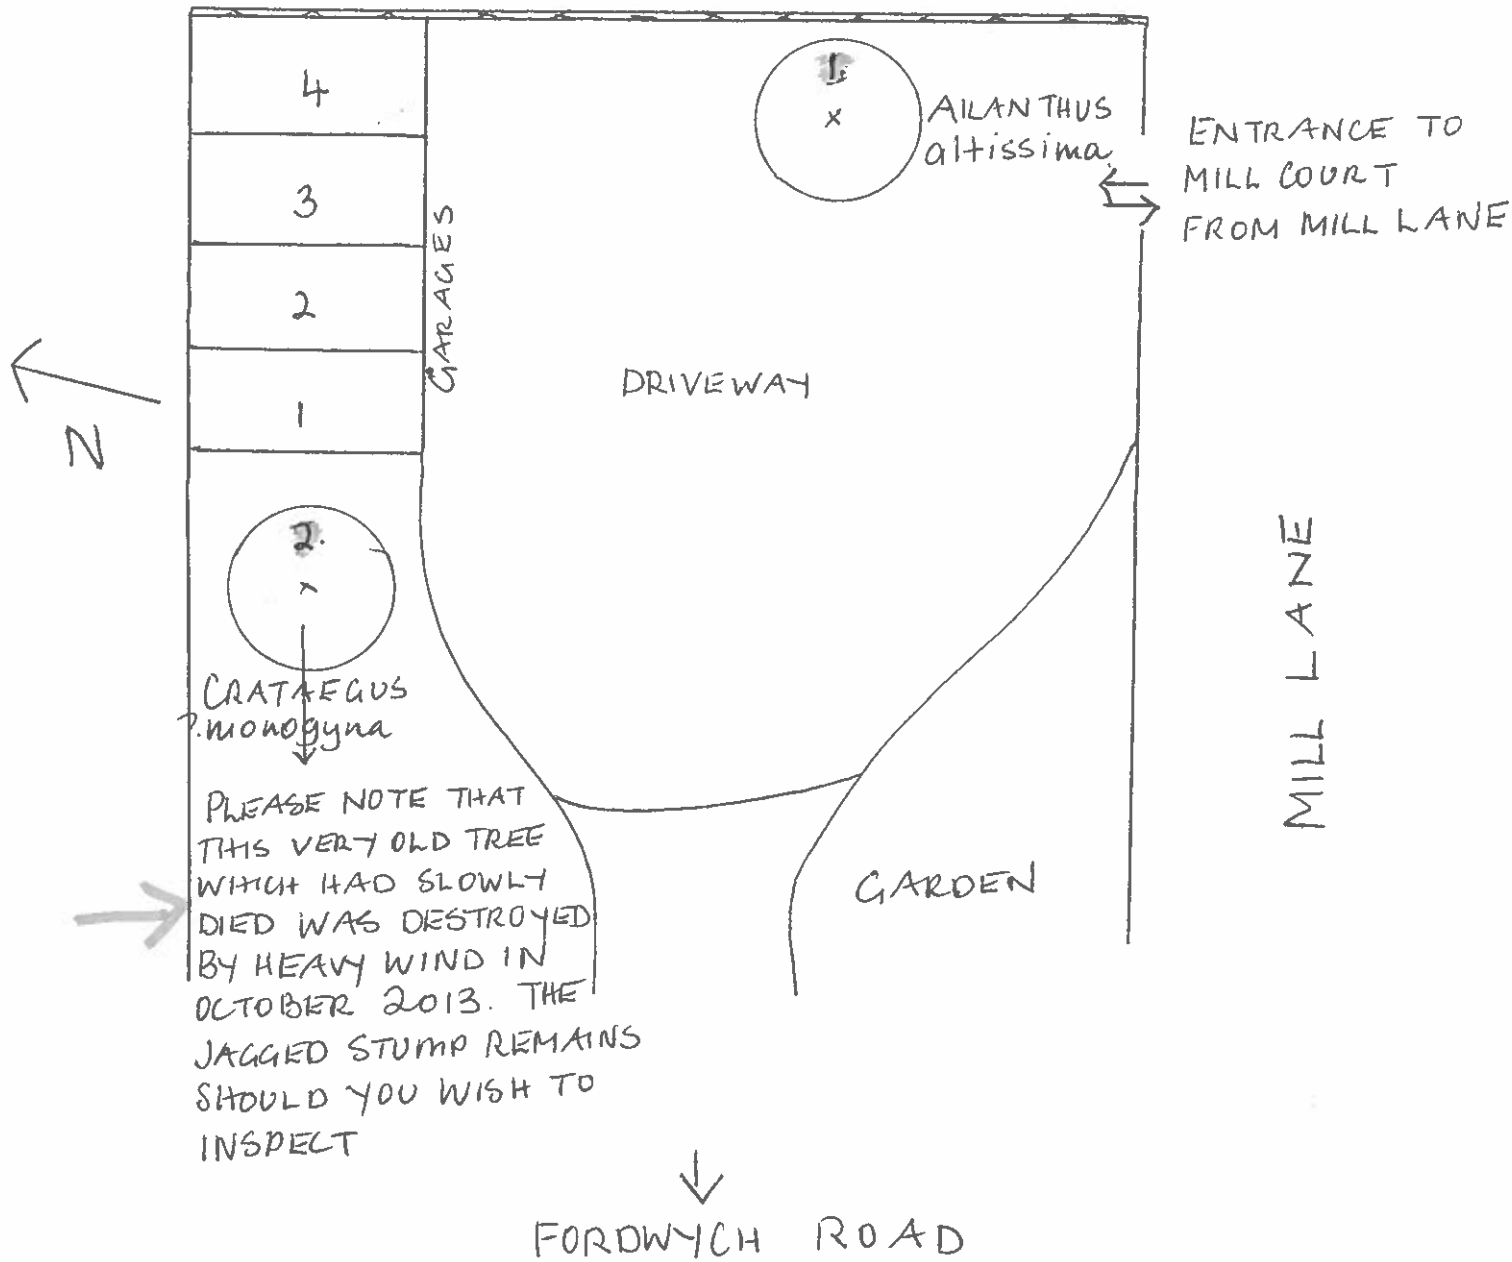 4
3
2
1
GARAGES
1.
x
AILANTHUS
altissima
ENTRANCE TO
MILL COURT
FROM MILL LANE
N
DRIVEWAY
2.
x
CRATAEGUS
?monogyna
PLEASE NOTE THAT
THIS VERY OLD TREE
WHICH HAD SLOWLY
DIED WAS DESTROYED
BY HEAVY WIND IN
OCTOBER 2013. THE
JAGGED STUMP REMAINS
SHOULD YOU WISH TO
INSPECT
GARDEN
MILL LANE
FORDWYCH ROAD